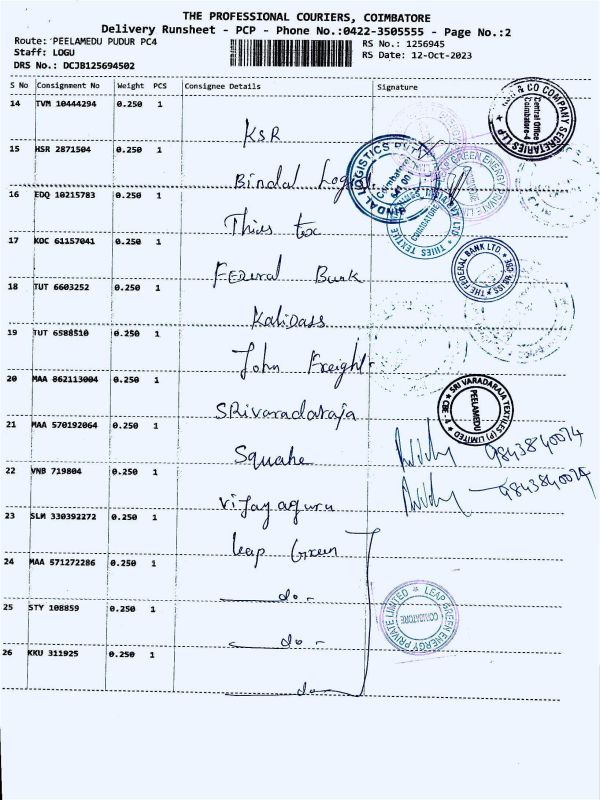 THE PROFESSIONAL COURIERS, COIMBATORE
Delivery Runsheet - PCP - Phone No.:0422-3505555 - Page No.:2
Route: PEELAMEDU PUDUR PC4
RS No.: 1256945
Staff: LOGU
RS Date: 12-Oct-2023
DRS No.: DCJB125694502
S No Consignment No Weight PCS Consignee Details Signature
14 TVM 10444294 0.250 1 KSR
15 HSR 2871504 0.250 1 Bindal
16 EDQ 10215783 0.250 1 Thies tex
17 KOC 61157041 0.250 1 Federal Bank
18 TUT 6603252 0.250 1 Kalidass
19 TUT 6588510 0.250 1 John Freight
20 MAA 862113004 0.250 1 SRivaradaraja
21 MAA 570192064 0.250 1 Square 9843840074
22 VNB 719804 0.250 1 Vijayaguru 9843840074
23 SLM 330392272 0.250 1 leap Green
24 MAA 571272286 0.250 1 do -
25 STY 108859 0.250 1 do -
26 KKU 311925 0.250 1 do
& CO COMPANY SECRETARIES LLP
Central Office
Coimbatore-4
BINDAL LOGISTICS PVT
Coimbatore
LEAP GREEN ENERGY PRIVATE LIMITED
THIES TEXTILE INDIA PVT LTD
COIMBATORE
THE FEDERAL BANK LTD
SRI VARADARAJA TEXTILES (P) LIMITED
PEELAMEDU
CBE - 4
LEAP GREEN ENERGY PRIVATE LIMITED
COIMBATORE